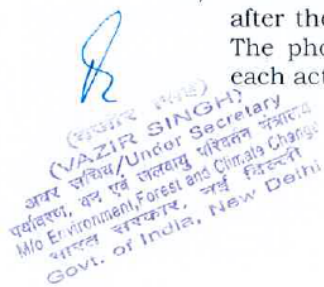 after the
The pho
each act
(वज़ीर सिंह)
(VAZIR SINGH)
अवर सचिव/Under Secretary
पर्यावरण, वन एवं जलवायु परिवर्तन मंत्रालय
M/o Environment, Forest and Climate Change
भारत सरकार, नई दिल्ली
Govt. of India, New Delhi